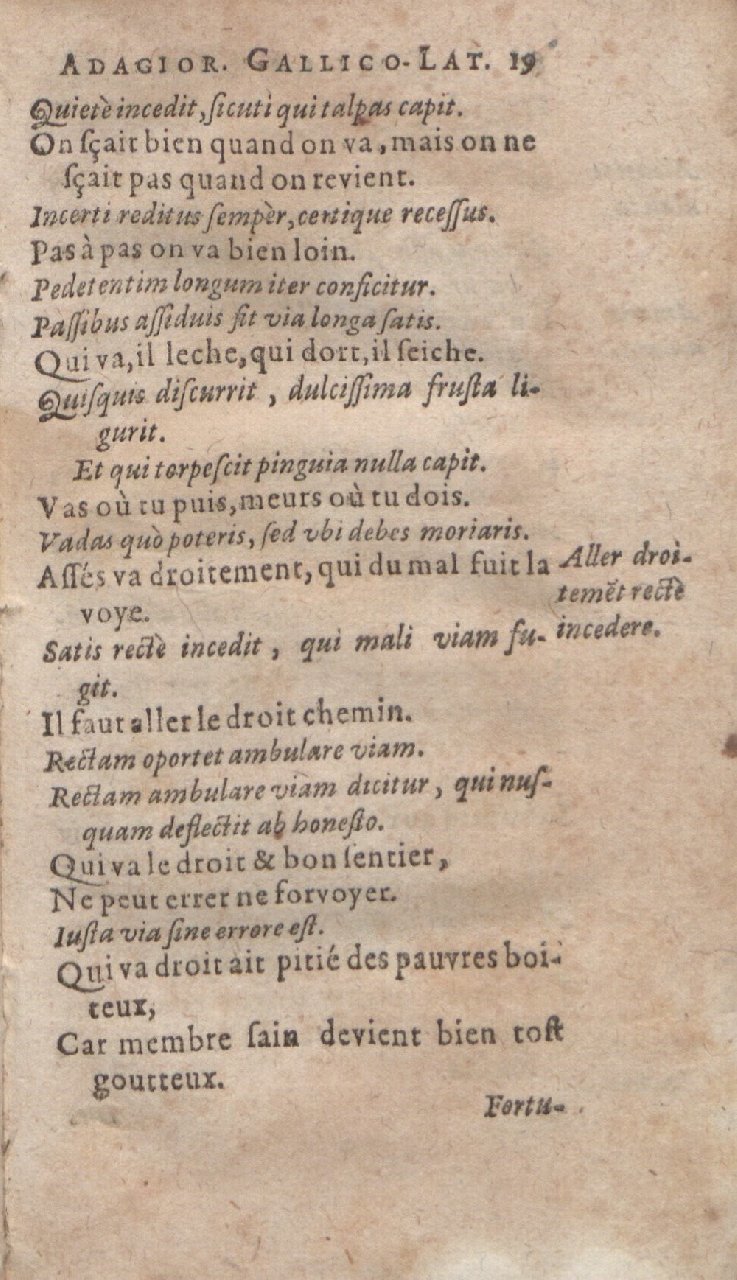 ADAGIOR. GALLICO-LAT. 19
Quietè incedit, ſicuti qui talpas capit.
On ſçait bien quand on va, mais on ne
ſçait pas quand on revient.
Incerti reditus ſempèr, certique receſſus.
Pas à pas on va bien loin.
Pedetentim longum iter conficitur.
Paſſibus aſſiduis fit via longa ſatis.
Qui va, il leche, qui dort, il ſeiche.
Quiſquis diſcurrit, dulciſſima fruſta li-
gurit.
Et qui torpeſcit pinguia nulla capit.
Vas où tu puis, meurs où tu dois.
Vadas quò poteris, ſed vbi debes moriaris.
Aſſés va droitement, qui du mal fuit la
voye.
Aller droi-
temēt rectè
incedere.
Satis rectè incedit, qui mali viam fu-
git.
Il faut aller le droit chemin.
Rectam oportet ambulare viam.
Rectam ambulare viam dicitur, qui nuſ-
quam deflectit ab honeſto.
Qui va le droit & bon ſentier,
Ne peut errer ne forvoyer.
Iuſta via ſine errore eſt.
Qui va droit ait pitié des pauvres boi-
teux,
Car membre ſain devient bien toſt
goutteux.
Fortu-